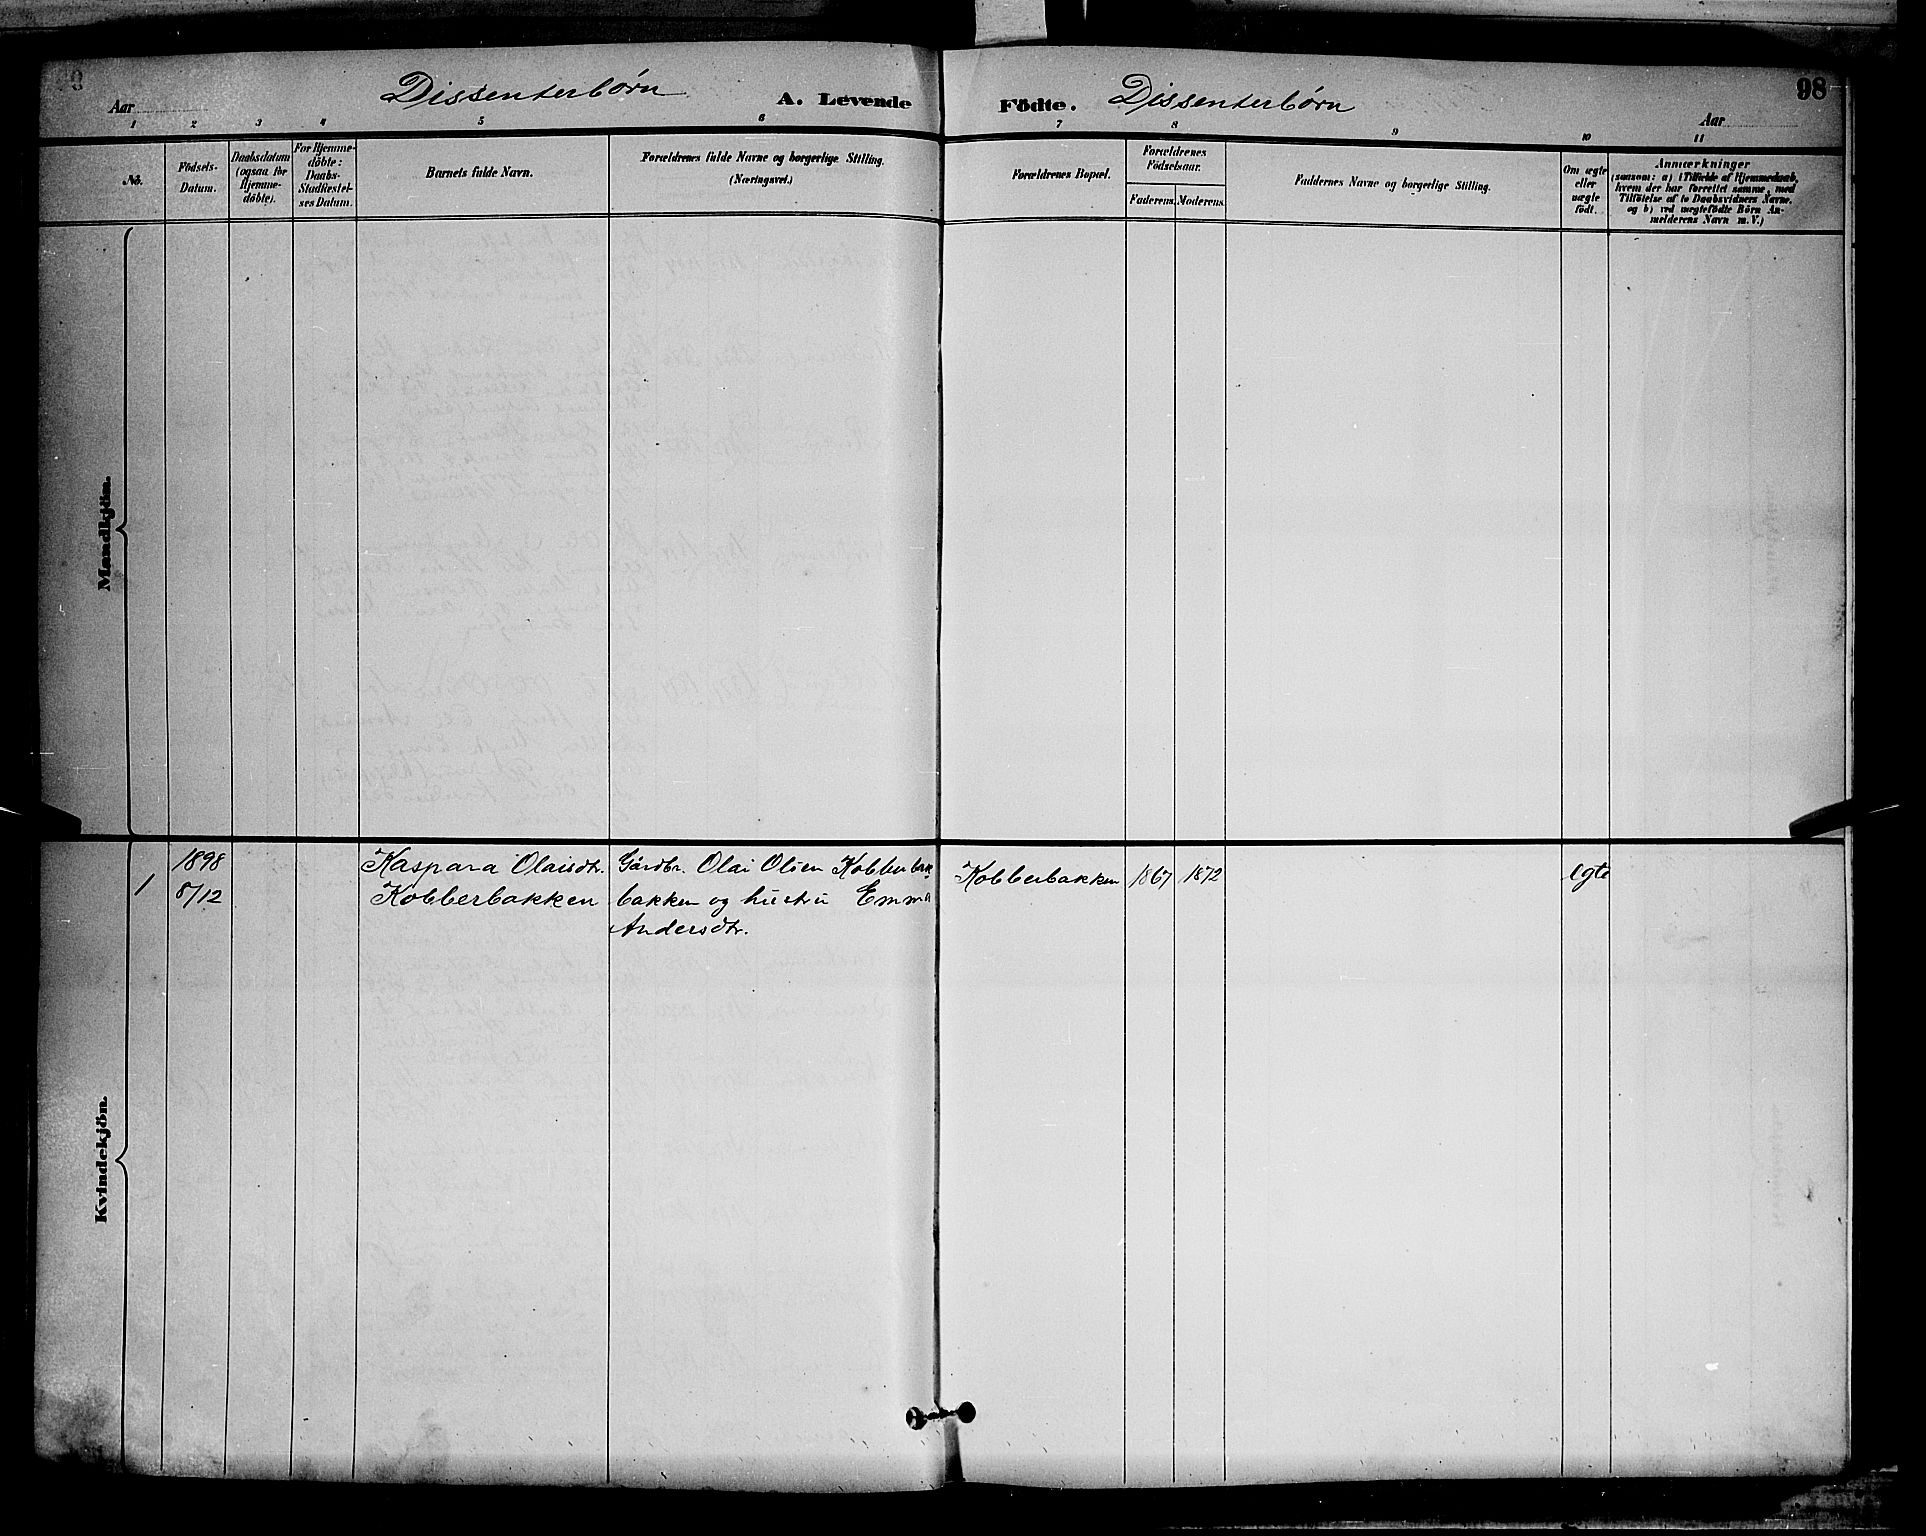 98
Dissenterbörn
A. Levende
Födte.
Dissenterbörn
Aar
Aar
1 2 3 4 5 6 7 8 9 10 11
No.
Födsels-
Datum.
Daabsdatum
(ogsaa for
Hjemme-
döbte).
For Hjemme-
döbte:
Daabs-
Stadfæstel-
ses Datum.
Barnets fulde Navn.
Forældrenes fulde Navne og borgerlige Stilling.
(Næringsvei.)
Forældrenes Bopæl.
Forældrenes
Födselsaar.
Faderens.
Moderens.
Faddernes Navne og borgerlige Stilling.
Om ægte
eller
uægte
født.
Anmærkninger
(saasom: a) i Tilfælde af Hjemmedaab,
hvem der har forrettet samme, med
Tilföielse af to Daabsvidners Navne.
og b) ved uægtefödte Börn An-
melderens Navn m. V.)
Mandkjön.
Kvindekjön.
1
1898
8/12
Kaspara Olaisdtr.
Kobberbakken
Gårdbr. Olai Olsen Kobberbak-
bakken og hustru Emma
Andersdtr.
Kobberbakken
1867
1872
Egte